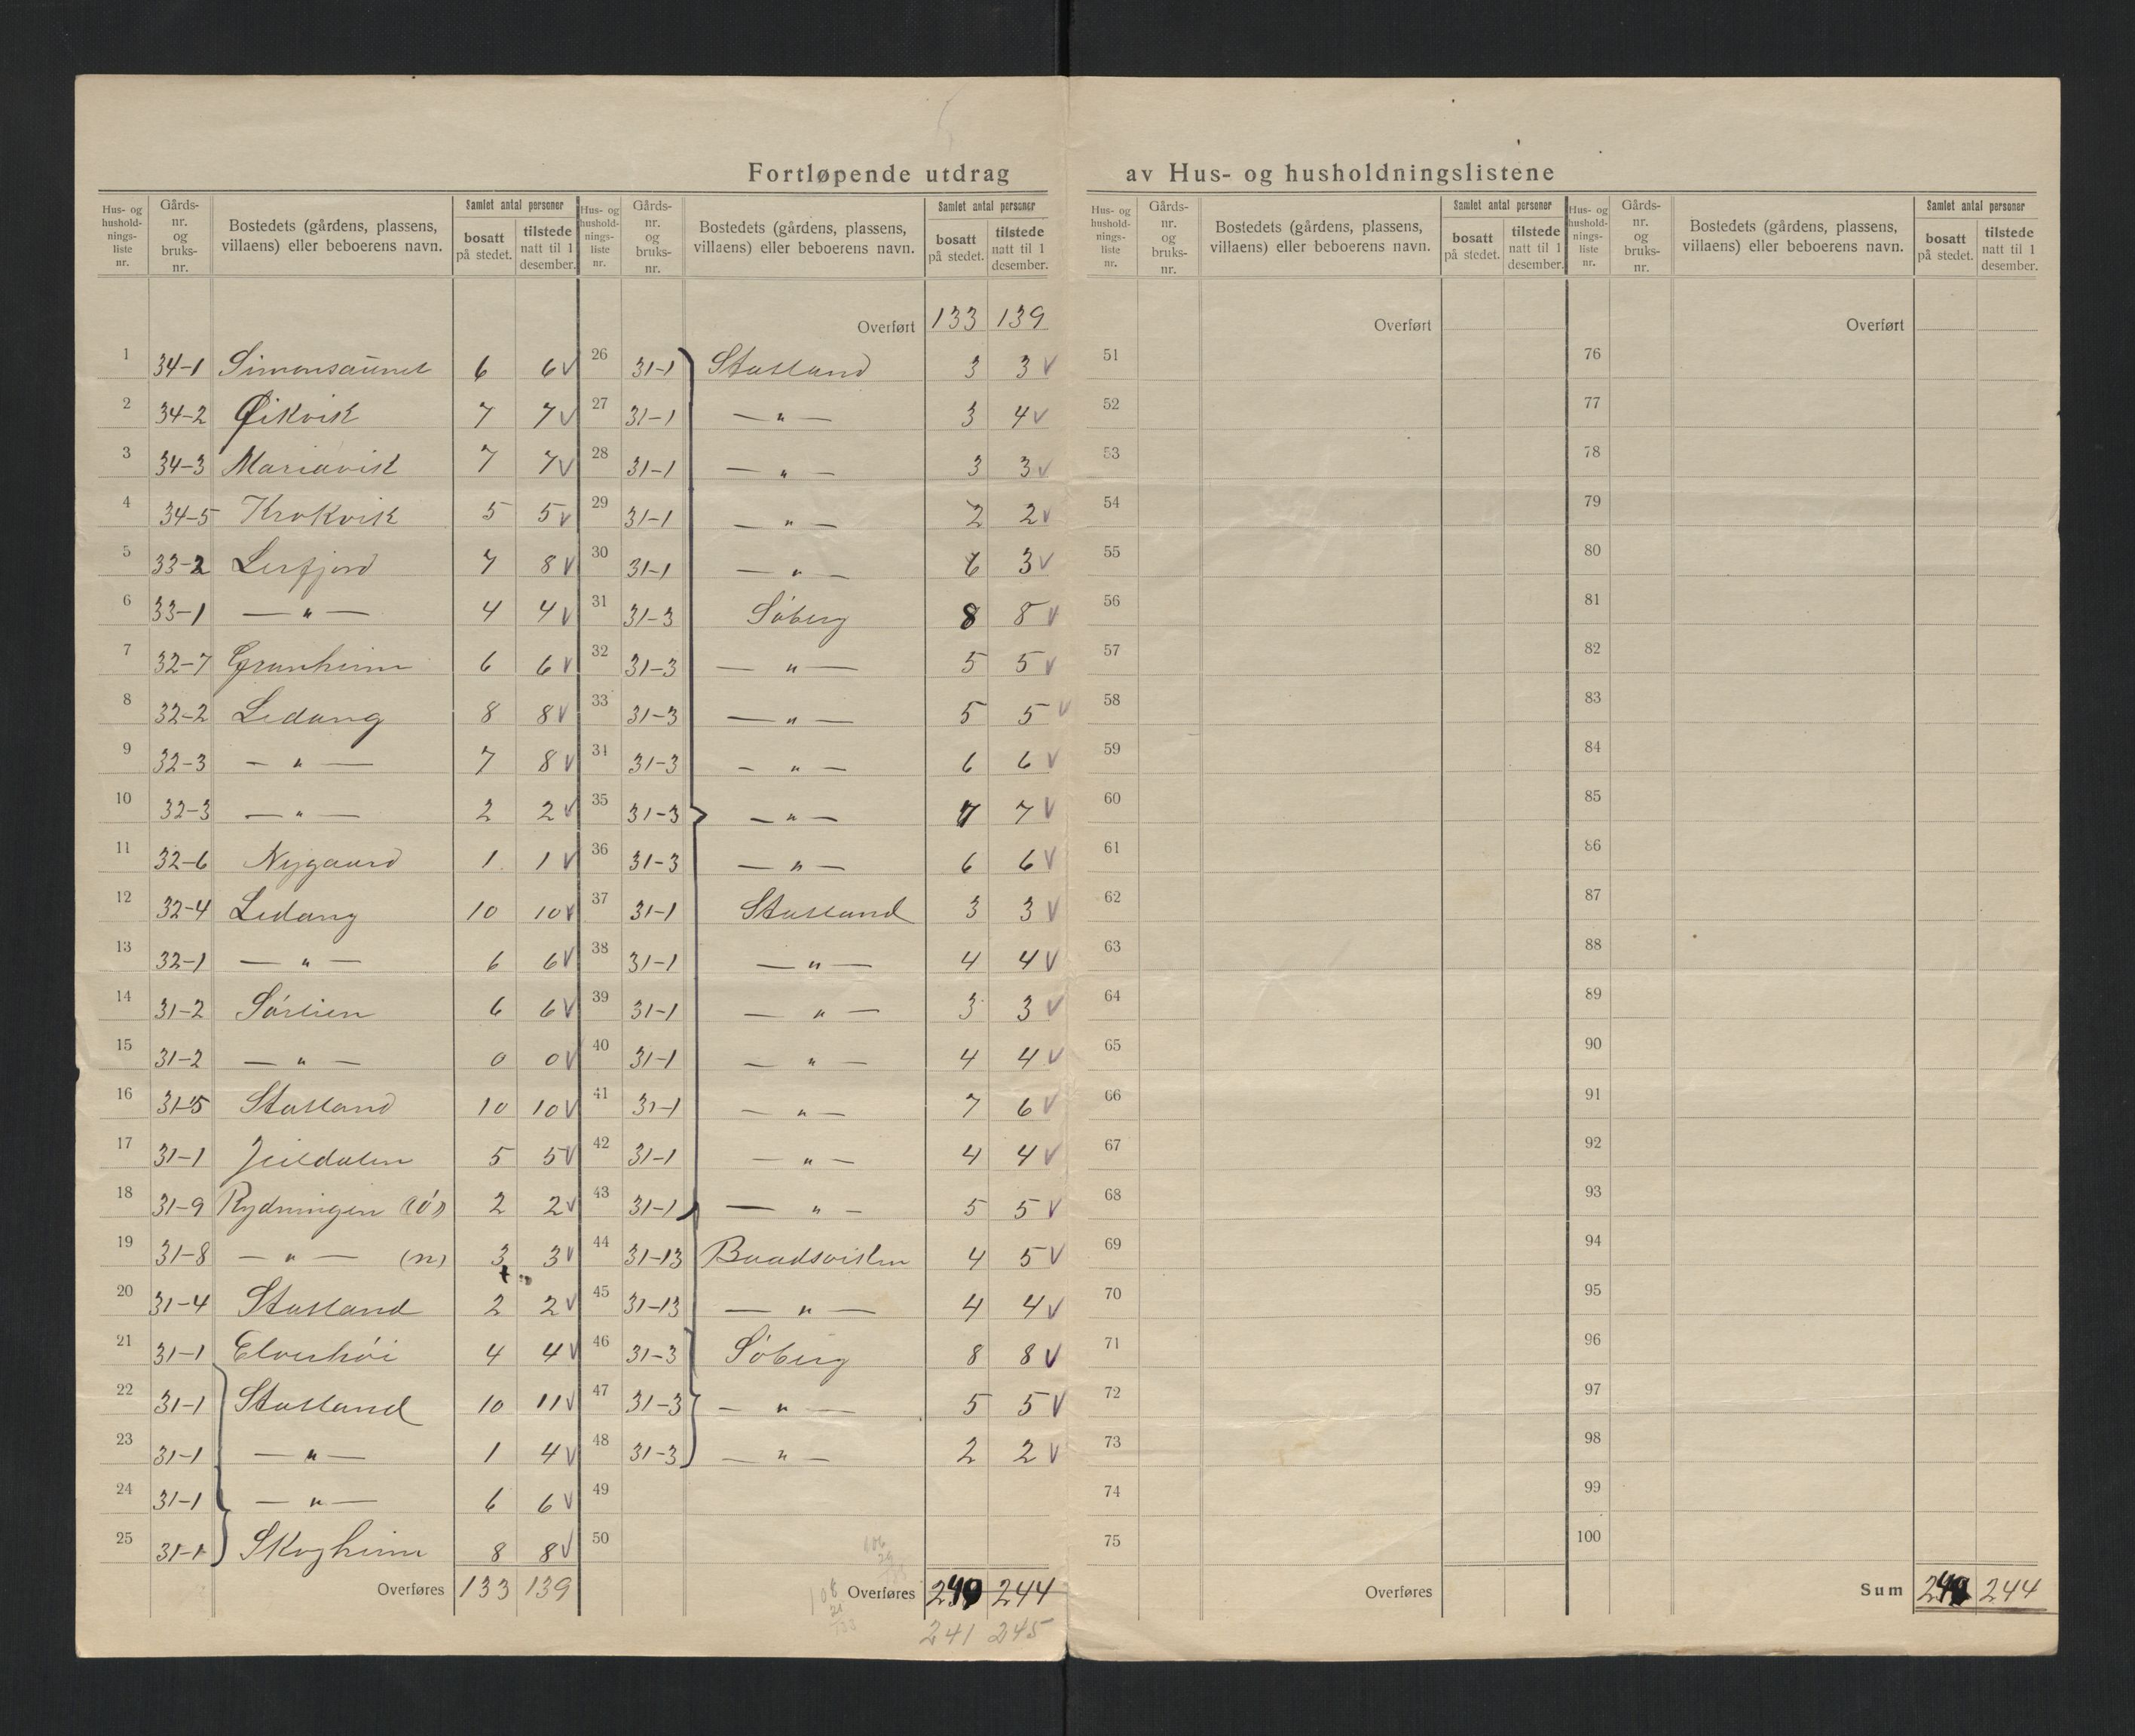 Fortløpende utdrag av Hus- og husholdningslistene
Hus- og hushold-nings-liste nr. Gårds-nr. og bruks-nr. Bostedets (gårdens, plassens, villaens) eller beboerens navn. Samlet antal personer bosatt på stedet. tilstede natt til 1 desember.
Hus- og hushold-nings-liste nr. Gårds-nr. og bruks-nr. Bostedets (gårdens, plassens, villaens) eller beboerens navn. Samlet antal personer bosatt på stedet. tilstede natt til 1 desember.
Hus- og hushold-nings-liste nr. Gårds-nr. og bruks-nr. Bostedets (gårdens, plassens, villaens) eller beboerens navn. Samlet antal personer bosatt på stedet. tilstede natt til 1 desember.
Hus- og hushold-nings-liste nr. Gårds-nr. og bruks-nr. Bostedets (gårdens, plassens, villaens) eller beboerens navn. Samlet antal personer bosatt på stedet. tilstede natt til 1 desember.
1 34-1 Simonsaunet 6 6 v
2 34-2 Øikvik 7 7 v
3 34-3 Mariavik 7 7 v
4 34-5 Krokvik 5 5 v
5 33-2 Lerfjord 7 8 v
6 33-1 — " — 4 4 v
7 32-7 Granheim 6 6 v
8 32-2 Ledang 8 8 v
9 32-3 — " — 7 8 v
10 32-3 — " — 2 2 v
11 32-6 Nygaard 1 1 v
12 32-4 Ledang 10 10 v
13 32-1 — " — 6 6 v
14 31-2 Sørlien 6 6 v
15 31-2 — " — 0 0 v
16 31-5 Statland 10 10 v
17 31-1 5 5 v
18 31-9 Rydningen (ø) 2 2 v
19 31-8 — " — (n) 3 3 v
20 31-4 Statland 2 2 v
21 31-1 Elverhøi 4 4 v
22 31-1 Statland 10 11 v
23 31-1 — " — 1 4 v
24 31-1 — " — 6 6 v
25 31-1 Skogheim 8 8 v
Overføres 133 139
Overført 133 139
26 31-1 Statland 3 3 v
27 31-1 — " — 3 4 v
28 31-1 — " — 3 3 v
29 31-1 — " — 2 2 v
30 31-1 — " — 3 v
31 31-3 Søberg 8 8 v
32 31-3 — " — 5 5 v
33 31-3 — " — 5 5 v
34 31-3 — " — 6 6 v
35 31-3 — " — 7 7 v
36 31-3 — " — 6 6 v
37 31-1 Statland 3 3 v
38 31-1 — " — 4 4 v
39 31-1 — " — 3 3 v
40 31-1 — " — 4 4 v
41 31-1 — " — 7 6 v
42 31-1 — " — 4 4 v
43 31-1 — " — 5 5 v
44 31-13 Baadsviken 4 5 v
45 31-13 — " — 4 4 v
46 31-3 Søberg 8 8 v
47 31-3 — " — 5 5 v
48 31-3 — " — 2 2 v
49
50
Overføres 244
241 245
Overført
51
52
53
54
55
56
57
58
59
60
61
62
63
64
65
66
67
68
69
70
71
72
73
74
75
Overføres
Overført
76
77
78
79
80
81
82
83
84
85
86
87
88
89
90
91
92
93
94
95
96
97
98
99
100
Sum 244